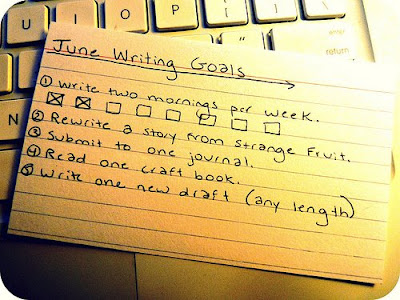 U I O P
enter
return
N
June Writing Goals
① Write two mornings per week.
☒ ☒ ☐ ☐ ☐ ☐ ☐ ☐
② Rewrite a story from Strange Fruit.
③ Submit to one journal.
④ Read one craft book.
⑤ Write one new draft (any length)